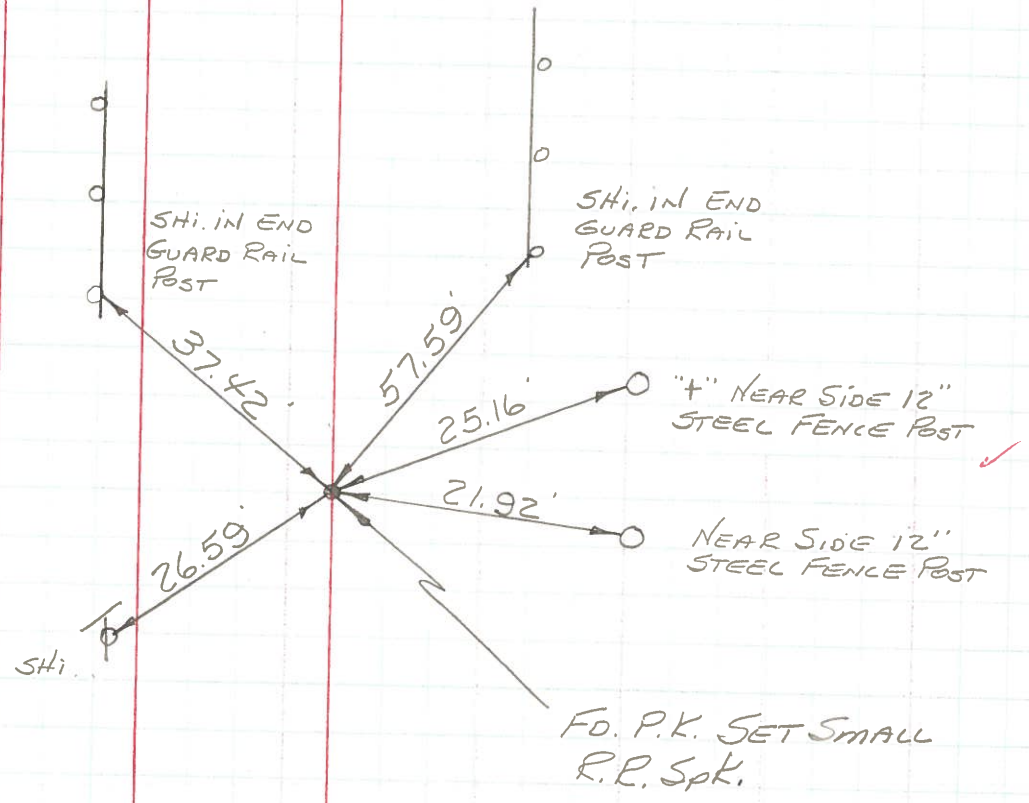 SHi. IN END
GUARD RAIL
POST
SHi. IN END
GUARD RAIL
POST
37.42'
57.59'
25.16'
"+" NEAR SIDE 12"
STEEL FENCE POST
21.92'
NEAR SIDE 12"
STEEL FENCE POST
26.59'
SHi.
FD. P.K. SET SMALL
R.R. SpK.